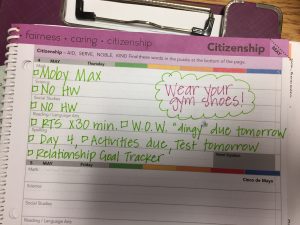 fairness • caring • citizenship
Citizenship
Citizenship – AID, SERVE, NOBLE, KIND Find these words in the puzzle at the bottom of the page.
4 MAY Thursday
Moby Max
Wear your
gym shoes!
Science
No HW
Social Studies
No HW
Reading / Language Arts
RTS x30 min. W.O.W. "dingy" due tomorrow
Spelling
Day 4, Activities due, Test tomorrow
Relationship Goal Tracker
5 MAY Friday
Cinco de Mayo
Math
Science
Social Studies
Reading / Language Arts